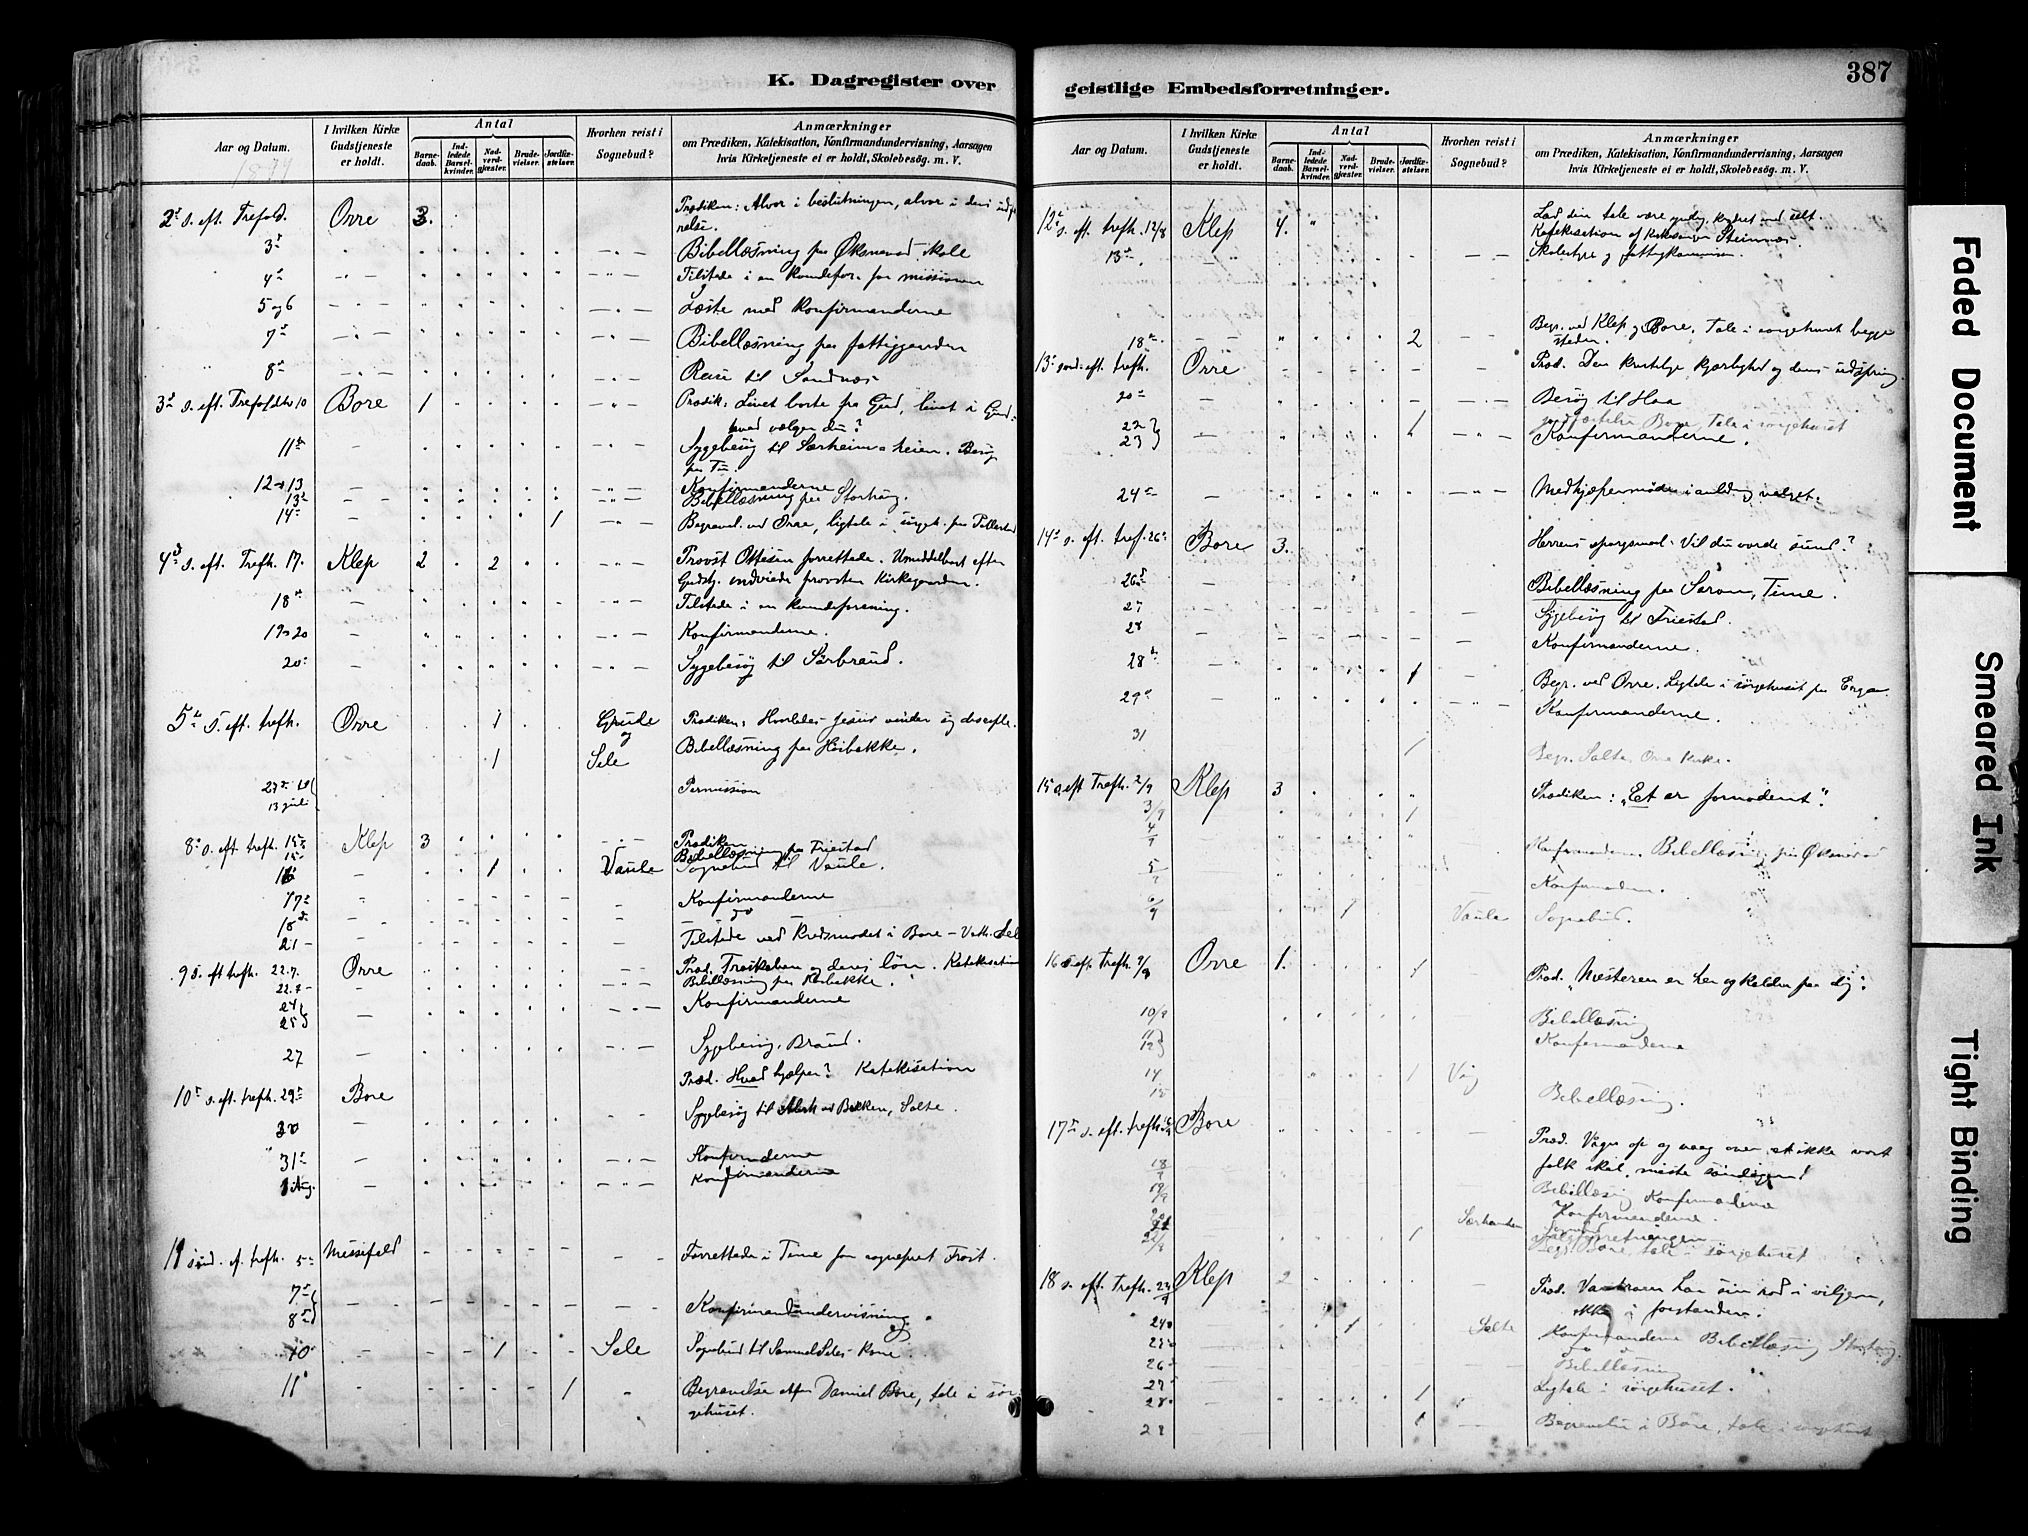 K. Dagregister over
geistlige Embedsforretninger.
387
Aar og Datum.
I hvilken Kirke Gudstjeneste er holdt.
Antal
Barnedaab.
Indledede Barselkvinder.
Nadverdgjæster.
Brudevielser.
Jordfæstelser.
Hvorhen reist i Sognebud?
Anmærkninger
om Prædiken, Katekisation, Konfirmandundervisning, Aarsagen
hvis Kirketjeneste ei er holdt, Skolebesøg. m. V.
2. s. eft. Trefold. Orre 3. Prædiken: Alvor i beslutningen, alvor i dens udfø
relse.
3 Bibellæsning paa Øksnevad skole
4 Tilstede i en kvindefor. for missionen
5 og 6 Læste med konfirmanderne
7 Bibellæsning paa fattiggaarden
8 Reise til Sandnæs
3 s. eft. Trefoldh 10 Bore 1 Prædik: Livet borte fra Gud, livet i Gud:
hvad vælger du?
11 Sygebesøg til Særheim
12 13 Konfirmanderne
13 Bibellæsning paa Storhaug.
14 1 Begravel. ved Orre, ligtale i
4 s. eft. Trefh. 17. Klep 2 2 Provst Ottesen forrettede. Umiddelbart efter
Gudstj. indviede provsten Kirkegaarden.
18 Tilstede i en kvindeforening.
19 20 Konfirmanderne.
20 Sygebesøg til
5 s. eft. trefh. Orre 1 Grude Prædiken: Hvorledes Jesus vinder sig disciple.
og
1 Sele Bibellæsning paa Høibakke.
13 juli Permission
8 s. eft. trefh. 15 Klep 3 Prædiken
15 Bibellæsning paa Friestad
16 1 Vaule Sognebud til Vaule.
17 Konfirmanderne
18 do
21 Tilstede ved Kredsmødet i Bore
9 s. eft trefh. 22.7. Orre Præd. Troskaben og dens løn. Katekisation
22.7 Bibellæsning paa Høibakke.
24
25 Konfirmanderne
27 Sygebesøg, Braud.
10 s. eft. trefh. 29 Bore Præd. Hvad hjælper? Katekisation
30 Sygebesøg til Bakken, Salte.
31 Konfirmanderne
1 Aug. Konfirmanderne
11 sønd. ef. trefh. 5 Messefald Forrettede i Time for sognepræst Frost.
7
8 Konfirmandundervisning
10 1 Sele Sognebud til Samuel Seles kone.
11 1 Begravelse efter Daniel Bore, tale i sør
gehuset.
Aar og Datum.
I hvilken Kirke Gudstjeneste er holdt.
Antal
Barnedaab.
Indledede Barselkvinder.
Nadverdgjæster.
Brudevielser.
Jordfæstelser.
Hvorhen reist i Sognebud?
Anmærkninger
om Prædiken, Katekisation, Konfirmandundervisning, Aarsagen
hvis Kirketjeneste ei er holdt, Skolebesøg. m. V.
12 s. eft. trefh. 12/8 Klep 4. Lad din tale være yndig, krydret med salt.
Katekisation af kirkesanger Steinnæs.
13 Skolestyre og fattigkommission.
18 2 Begr. ved Klep og Bore. Tale i sørgehuset begge
steder.
13 sønd. eft. trefh. Orre Præd. Den kristelige kjærlighed og dens udøvning.
20 Besøg til Haa
22 1 Bore, Tale i sørgehuset
23 Konfirmanderne.
24
14 s. eft. tref. 26 Bore 3. Herrens spørgsmaal: Vil du vorde sund?
26 Bibellæsning paa Saron, Time.
27 Sygebesøg til Friestad.
28 Konfirmanderne.
28 1 Begr. ved Orre. Ligtale i sørgehuset paa Erga.
29 Konfirmanderne.
31 1 Begr. Salte, Orre kirke.
15 s. eft Trefh. 2/9 Klep 3 Prædiken: "Et er fornødent".
3/9 1
4/9 Bibellæsning paa Øksnevad
5/9
6/9 1 Vaule Sognebud.
16 s. eft. Trefh. 9/9 Orre 1. 1 Præd. "Mesteren er her og kalder paa dig".
10/9 Bibellæsning
11
12 Konfirmanderne
14 1 Vig
15 Bibellæsning.
17 s. eft. trefh. Bore Præd. Vaagn op og vaag over at ikke vort
folk skal miste søndagen!
18/9 Bibellæsning Konfirmanderne
19/9 Konfirmanderne.
1 Begr. Bore, tale i sørgehuset
18 s. eft. Trefh. 23/9 Klep 2 Præd. Vantroen har sin rod i viljen,
ikke i forstanden.
24 1 Salte Konfirmanderne Bibellæsning Storhaug.
25 do
26 Bibellæsning
27 1 Ligtale i sørgehuset.
28
28 1 Begravelse i Bore, tale i sørgehuset
Faded Document
Smeared Ink
Tight Binding